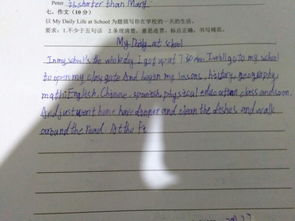 Peter is shorter than Mary.
七、作文(10分)
以 My Daily Life at School 为题描写你在学校的一天的生活。
要求:1.不少于五句话 2.条理清楚,意思连贯,标点正确,书写规范。
My Daily at school
In my school's the whole day. I got up at 7:30 am. I will go to my school
to open my class gate And began my lessons, history, geography
math, English, Chinese, spanish, physical education class and soon.
And just went home have danper and clean the dishes and walk
around the road. At the